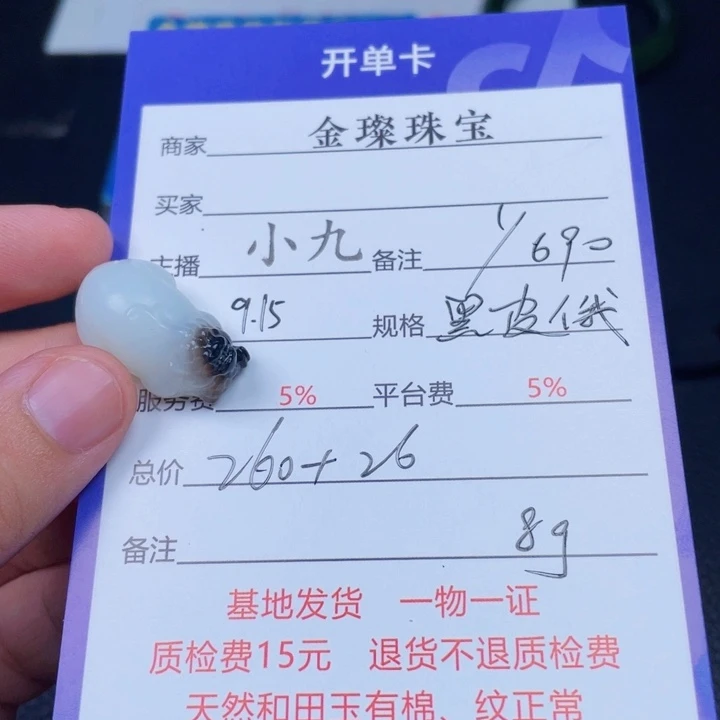 开单卡
商家 金璨珠宝
买家
主播 小九 备注 1/690
9.15 规格 黑皮俄
服务费 5% 平台费 5%
总价 260+26
备注 8g
基地发货 一物一证
质检费15元 退货不退质检费
天然和田玉有棉、纹正常